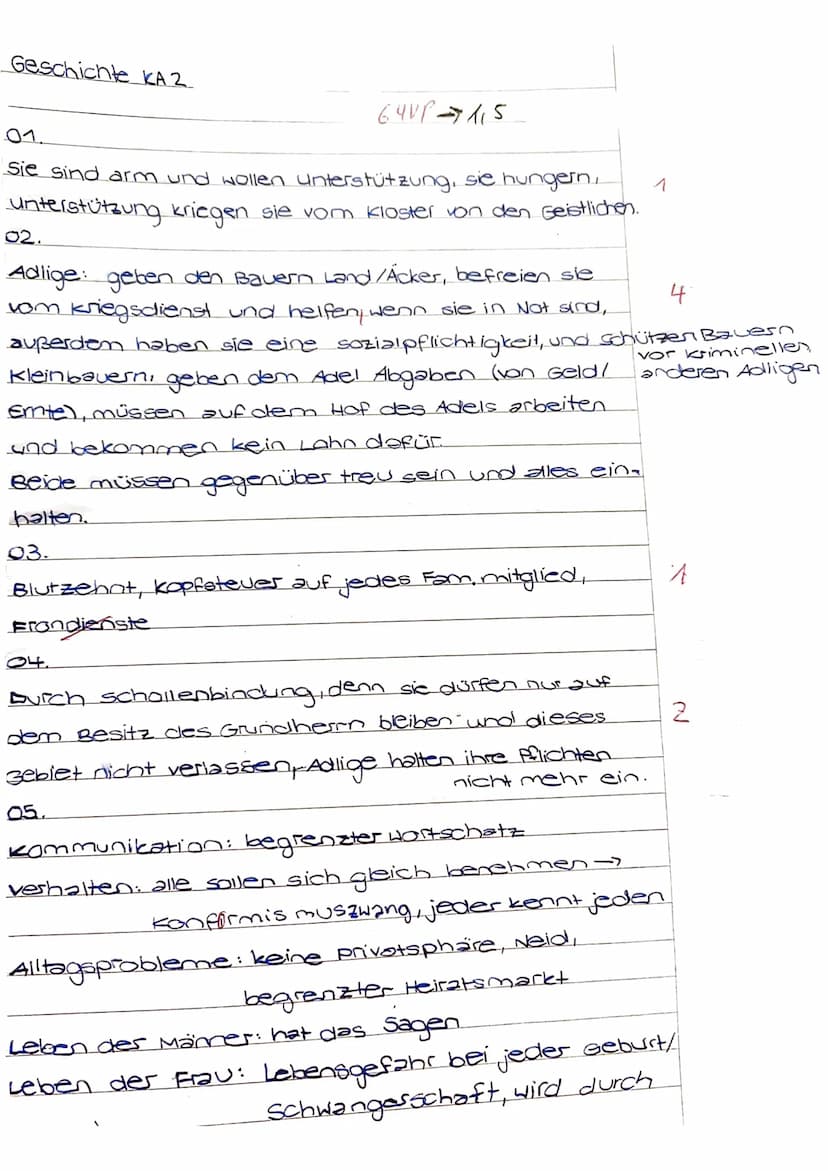 Geschichte KA 2
64VP → 1,5
01.
Sie sind arm und wollen unterstützung, sie hungern, 1
unterstützung kriegen sie vom Kloster von den Geistlichen.
02.
Adlige: geben den Bauern Land/Äcker, befreien sie
vom Kriegsdienst und helfen, wenn sie in Not sind, 4
außerdem haben sie eine sozialpflichtigkeit, und schützen Bauern
vor kriminellen
Kleinbauern: geben dem Adel Abgaben (von Geld/ anderen Adligen
Ernte), müssen auf dem Hof des Adels arbeiten
und bekommen kein Lohn dafür.
Beide müssen gegenüber treu sein und alles ein-
halten.
03.
Blutzehnt, Kopfsteuer auf jedes Fam.mitglied, 1
Frondienste
04.
Durch schollenbindung, denn sie dürfen nur auf
dem Besitz des Grundherrn bleiben und dieses 2
Gebiet nicht verlassen, Adlige halten ihre Pflichten
nicht mehr ein.
05.
Kommunikation: begrenzter wortschatz
verhalten: alle sollen sich gleich benehmen →
Konformismuszwang, jeder kennt jeden
Alltagsprobleme: keine privatsphäre, Neid,
begrenzter Heiratsmarkt
Leben der Männer: hat das Sagen
Leben der Frau: Lebensgefahr bei jeder Geburt/
Schwangerschaft, wird durch